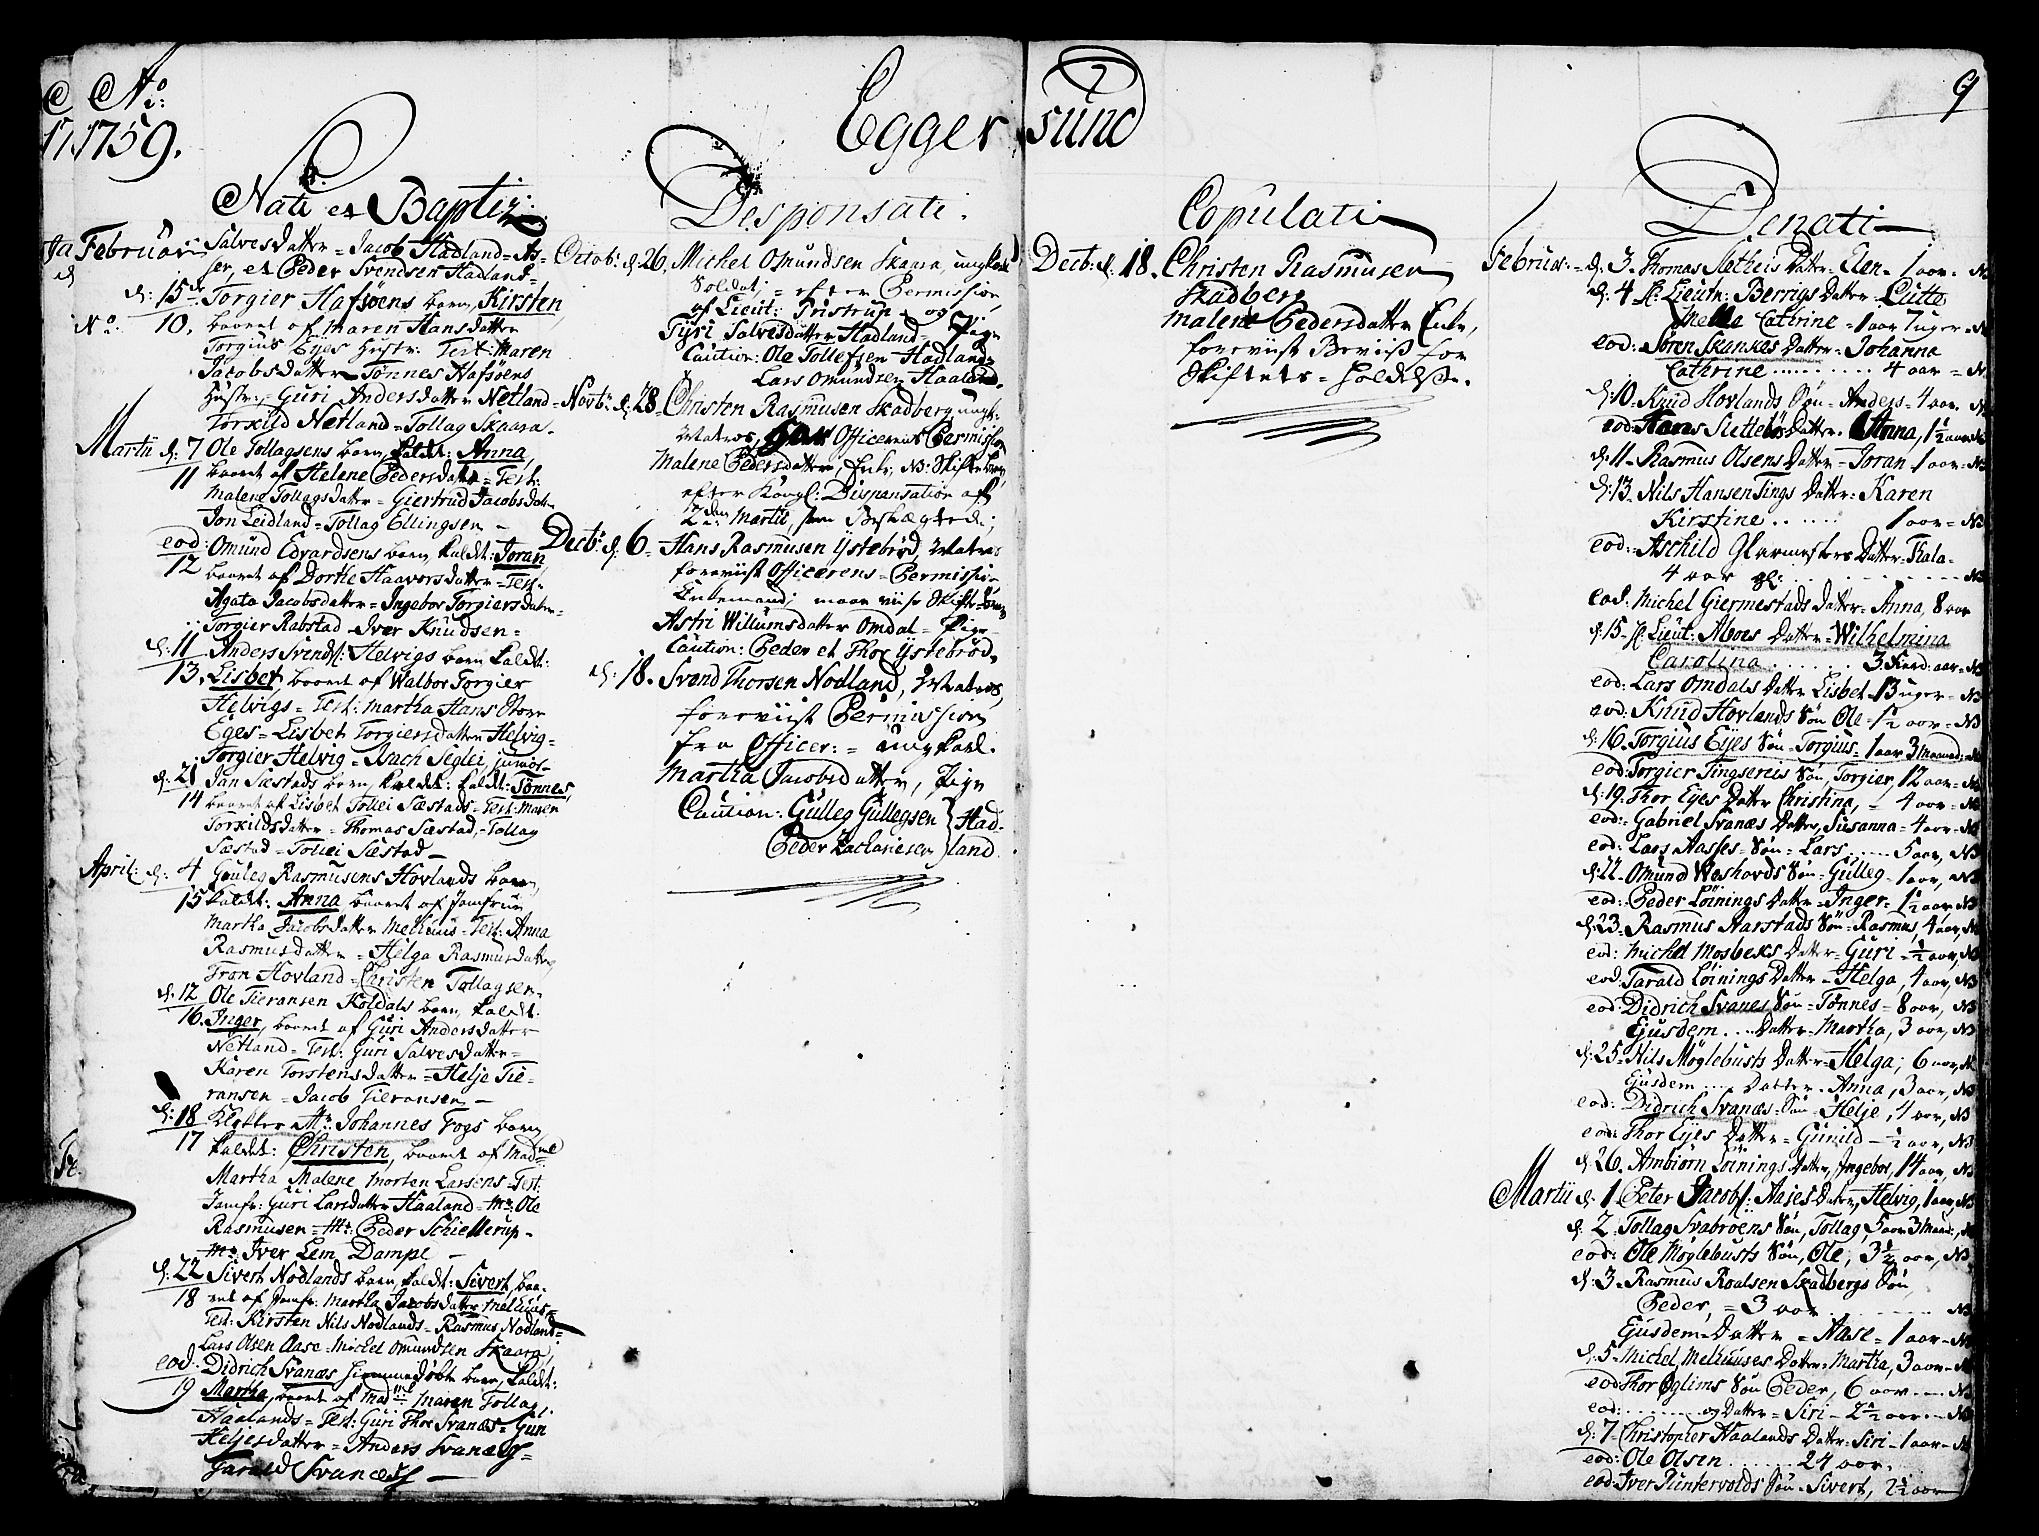 Aº:
1759.
Eggersund
9
Nati et Baptiz:
Februarii
SalvesDatter = Jacob Hadland = As-
ser, et Peder Svendsen Hadland =
d: 15de Torgier Hafsöens barn, Kirsten,
Nº: 10. baaret af Maren Hansdatter
Torgius Eyes Hustr: Test: Maren
Jacobsdatter Tönnes Hafsöens
Hustr: = Guri Andersdatter Netland =
Torkild Netland = Tollag Skaara.
Martii d: 7 Ole Tollagsens barn, kaldt: Anna,
11 baaret af Helene Pedersdatter = Test:
Malene Tollagsdatter = Giertrud Jacobsdatter
Jon Leidland = Tollag Ellingsen –
eod: Omund Edvardsens barn, kaldt: Joran,
12 baaret af Dorthe Haavorsdatter = Test:
Agata Jacobsdatter = Ingebor Torgiersdatter =
Torgier Rabstad – Iver Knudsen =
d: 11 Anders Svends: Helvigs barn kaldt:
13. Lisbet, baaret af Walbor Torgier
Helvigs = Test: Martha Hans Ovre
Eges = Lisbet Torgiersdatter Helvig =
Torgier Helvig = Isach Seglei, junior.
d: 21 Jan Sæstads barn, kaldt: Tönnes,
14 baaret af Lisbet Tollei Sæstads = Test: Maren
Torkildsdatter = Thomas Sæstad, = Tollag
Sæstad = Tollei Sæstad –
April: d: 4 Gouleg Rasmusens Hovlands barn,
15 kaldt: Anna baaret af Jomfrue
Martha Jacobsdatter Melhuus = Test: Anna
Rasmusdatter = Helga Rasmusdatter,
Tron Hovland = Christen Tollagsen.
d: 12 Ole Tieransen Koldals barn, kaldt:
16. Inger, baaret af Guri Andersdatter
Netland = Test: Guri Salvesdatter =
Karen Torstensdatter = Helje Tie-
ransen = Jacob Tieransen –
d: 18 Klokker Mr: Johannes Fogs barn
17 kaldt: Christen, baaret af Madme
Martha Malene Morten Larsens = Test:
Jomfr: Guri Larsdatter Haaland = Mr: Ole
Rasmusen = Mr: Peder Schiellerup =
Mr: Iver Lem Dampe –
d: 22 Sivert Nodlands barn, kaldt: Sivert, baa-
18 ret af Jomfr: Martha Jacobsdatter Melhuus =
Test: Kirsten Nils Nodlands = Rasmus Nodland =
Lars Olsen Aase = Michel Omundsen Skaara,
eod: Didrich Svanæs hiemmedöbte barn, kaldt:
19 Martha, baaret af Madme Maren Tollag
Haalands = Test: Guri Thor Svanæs = Gun
Heljesdatter = Anders Svanæs =
Tarald Svanæs –
Desponsati.
Octob: d: 26. Michel Omundsen Skaara, ungkarl
Soldat; = efter Permission
af Lieut: Pristrup = og
Tyri Salvesdatter Hadland = Pige
Caution: Ole Tollefsen Hadland =
Lars Omundsen Haaland.
Novb: d: 28. Christen Rasmusen Skadberg ungk:
Matros, Officerens Permission
Malene Pedersdatter, Enke, NB: Skifte
efter Kongl: Dispensation af
2den Martii, som Beslægtede;
Decbr d: 6 = Hans Rasmusen Ystebröd, Matros
foreviist Officerens = Permission
Enkemand;
Astri Willumsdatter Omdal = Pige
Caution: Peder et Thor Ystebröd.
d: 18. Svend Thorsen Nodland, Matros,
foreviist Permission
fra Officer: = ungkarl.
Martha Jacobsdatter, Pige
Caution: Gulleg Gullegsen } Had-
Peder Zachariesen } land.
Copulati
Decb: d: 18. Christen Rasmusen
Skadberg
Malene Pedersdatter Enke,
foreviist Beviis for
Skiftets = holdelse.
Denati
Februar: = d: 3. Thomas Sletheis Datter = Elen = 1 aar = NB
d: 4 Hr: Lieutn: Berrigs Datter = Lutte
Mella Cathrine = 1 aar 7 uger = NB
eod: Sören Skankes Datter = Johanna
Cathrine ......... 4 aar = NB
d: 10 = Knud Hovlands Sön = Anders = 4 aar. NB
eod: Hans Slettebös Datter = Anna, 1½ aar NB
d: 11 = Rasmus Olsens Datter = Joran = 1 aar = NB
d: 13. Nils Hansen Tings Datter = Karen
Kirstine ...... 1 aar = NB
eod: = Aschild Glarmesters Datter = Thala =
4 aar gl: ............ NB
eod: Michel Giermestads Datter = Anna, 8 aar
d: 15 = Hr: Lieut: Aboes Datter = Wilhelmina
Carolina ....... 3 Fierd: aar = NB
eod: Lars Omdals Datter Lisbet = 13 uger = NB
eod: Knud Hovlands Sön Ole = 1½ aar = NB
d: 16. Torgius Eyes Sön = Torgius = 1 aar 3 Maaned: NB
eod: Torgier Tingseries Sön, Torgier, 12 aar = NB
d: 19. Thor Eyes Datter Christina, = 4 aar = NB
eod: = Gabriel Svanæs Datter, Susanna = 4 aar = NB
eod: Lars Aasses = Sön = Lars ..... 5 aar, NB
d: 22 = Omund Weshovds Sön = Gulleg = 1 aar, NB
eod: Peder Löinings Datter = Inger = 1½ aar, NB
d: 23. Rasmus Aarstads Sön = Rasmus, 4 aar, NB
eod: Michel Mosbeks Datter = Guri = ½ aar, NB
eod: Tarald Löinings Datter = Helga, 4 aar, NB
eod: Didrich Svanes Sön = Tönnes = 8 aar, NB
Ejusdem ... Datter = Martha, 3 aar, NB
d: 25. Nils Möglebusts Datter = Helga, 6 aar, NB
Ejusdem .... Datter = Anna, 3 aar, NB
eod: Didrich Svanæs = Sön = Helje, 1 aar, NB
eod: Thor Eyes Datter = Gunild = ½ aar, NB
d: 26. Ambiörn Löinings Datter, Ingebor, 14 aar, NB
Martii d: 1. Peter Jacobs: Aases Datter, Helvig, 1 aar, NB
d: 2. Tollag Svabroens Sön, Tollag, 5 aar 3 Maan:, NB
eod: Ole Möglebusts Sön, Ole, 3½ aar, NB
d: 3. Rasmus Roalsen Skadbergs Sön,
Peder, = 3 aar ......... NB
Ejusdem = Datter = Aase = 1 aar = NB
d: 5 = Michel, Melhuuses Datter = Martha, 3 aar = NB
eod: Thor Oglims Sön Peder, 6 aar .... NB
eod: ........ og Datter = Siri = 2½ aar ... NB
d: 7 = Christopher Haalands Datter = Siri = 1 aar = NB
eod: Ole Olsen ....... 24 aar.
eod: Iver Puntervolds Sön = Sivert, 2½ aar